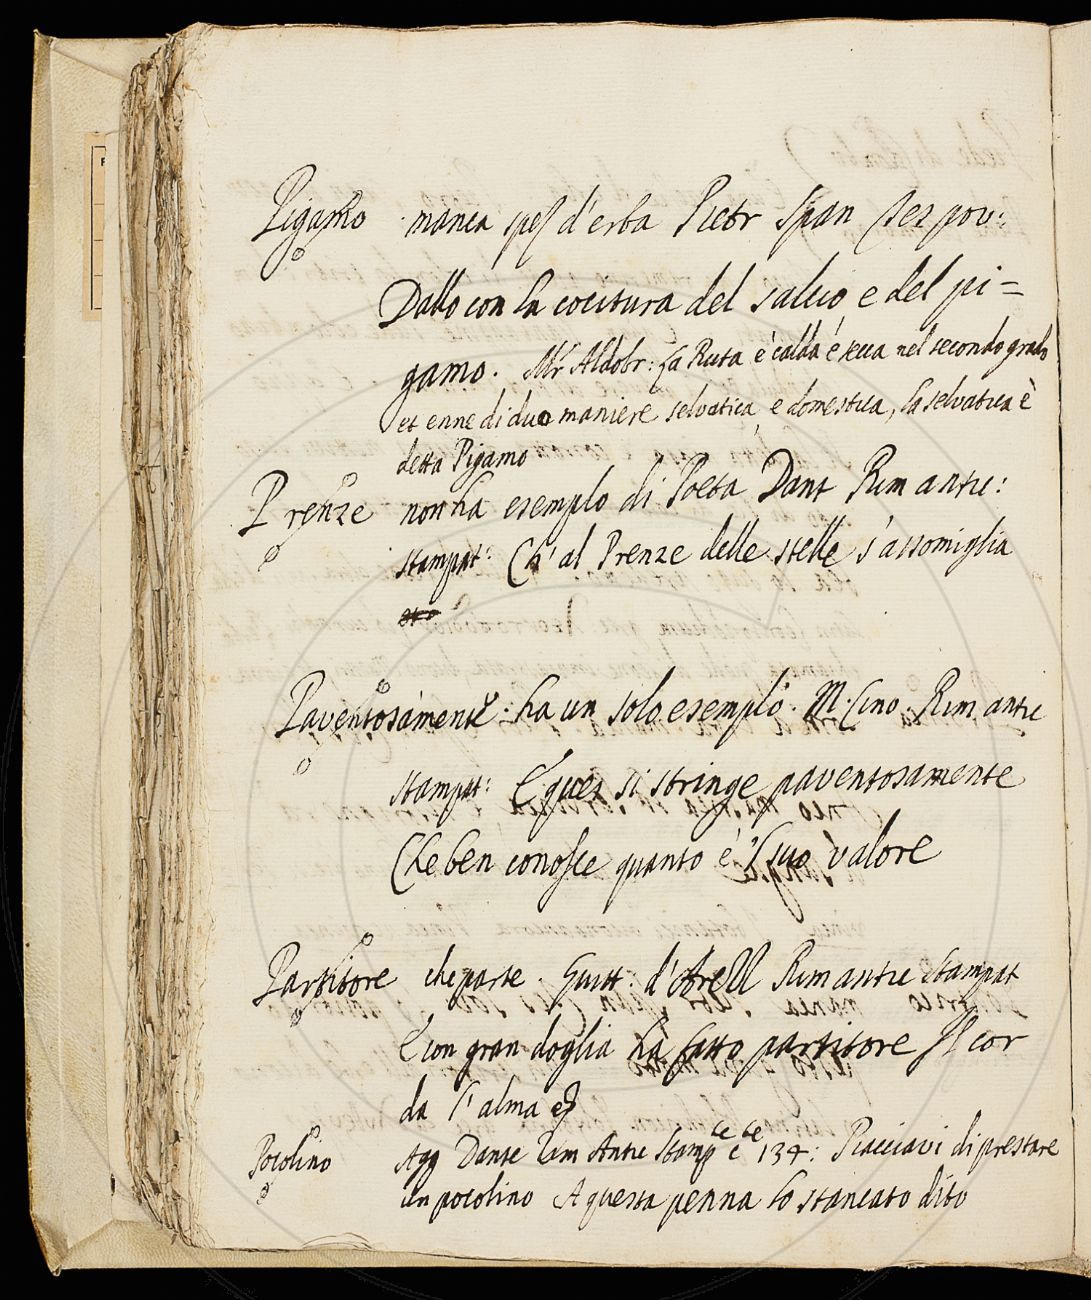 Pigamo manca spez d'erba Pietr Span Tes pov:
Dallo con la cocitura del salcio, e del pi=
gamo. Mr Aldobr: la Ruta è calda è secca nel secondo grado
et enne di duo maniere selvatica, e domestica, la selvatica è
detta Pigamo
Prenze non ha esempio di Poeta Dant Rim antic:
stampat: Ch' al Prenze delle stelle s'assomiglia
Paventosamente: ha un solo esempio. M. Cino. Rim antic
stampat: E quei si stringe paventosamente
Che ben conosce quanto è 'l suo valore
Partitore che parte. Guitt: d'Arezz Rim antic stampat
E con gran doglia ha fatto partitore Il cor
da l'alma
Pocolino Agg Dante Rim Antic Stamp ce c ce 134: Piacciavi di prestare
un pocolino A questa penna lo stancato dito